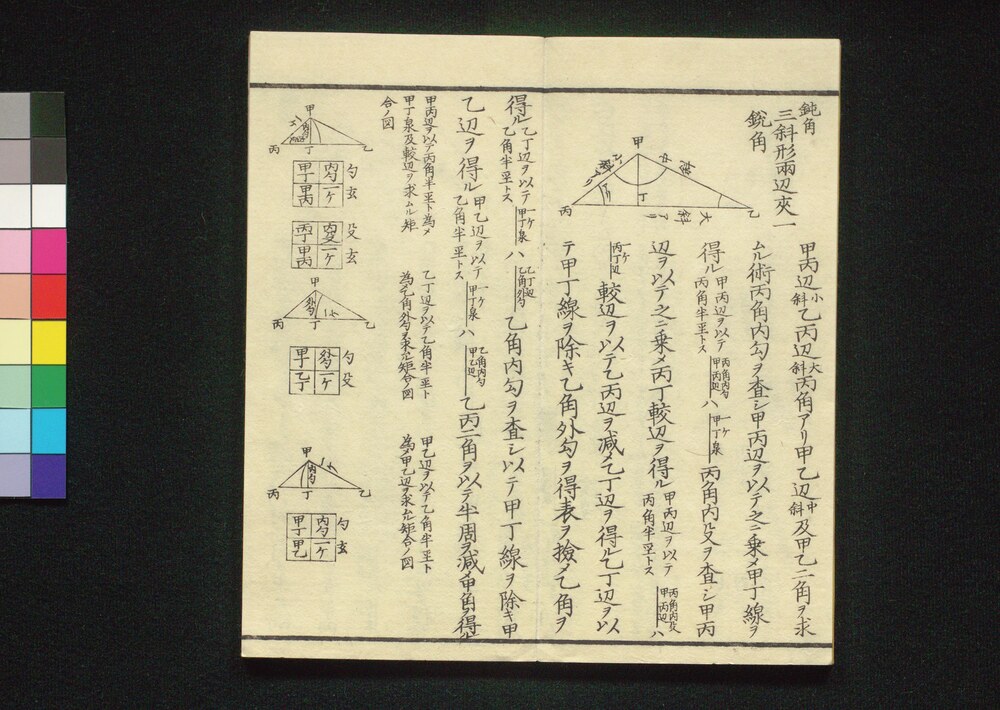 鈍角
三斜形兩辺夾一
鋭角
甲
乙
丙
丁
大斜アリ
甲丙辺小斜乙丙辺大斜丙角アリ甲乙辺中斜及甲乙二角ヲ求
ムル術丙角内勾ヲ査シ甲丙辺ヲ以テ之ニ乗メ甲丁線ヲ
得ル甲丙辺ヲ以テ丙角半至トス 丙角内勾 甲丙辺 ハ 一ケ 甲丁泉 丙角内殳ヲ査シ甲丙
辺ヲ以テ之ニ乗メ丙丁較辺ヲ得ル甲丙辺ヲ以テ丙角半至トス 丙角内殳 甲丙辺 ハ
一ケ 丙丁辺 較辺ヲ以テ乙丙辺ヲ減メ乙丁辺ヲ得ル乙丁辺ヲ以
テ甲丁線ヲ除キ乙角外勾ヲ得表ヲ撿メ乙角ヲ
得ル乙丁辺ヲ以テ乙角半至トス 一ケ 甲丁泉 ハ 乙丁辺 乙角外勾 乙角内勾ヲ査シ以テ甲丁線ヲ除キ甲
乙辺ヲ得ル甲乙辺ヲ以テ乙角半至トス 一ケ 甲丁泉 ハ 乙角内勾 甲乙辺 乙丙二角ヲ以テ半周ヲ減メ甲角ヲ得ル
甲丙辺ヲ以テ丙角半至ト為メ
甲丁泉及較辺ヲ求ムル矩
合ノ図
乙丁辺ヲ以テ乙角半至ト
為乙角外勾ヲ求ル矩合ノ図
甲乙辺ヲ以テ乙角半至ト
為メ甲乙辺ヲ求ル矩合ノ図
甲
乙
丙
丁
内勾 一ケ 勾玄
甲丁 甲丙
内殳 一ケ 殳玄
丙丁 甲丙
甲
乙
丙
丁
外勾 一ケ 勾殳
甲丁 乙丁
甲
乙
丙
丁
内勾 一ケ 勾玄
甲丁 甲乙